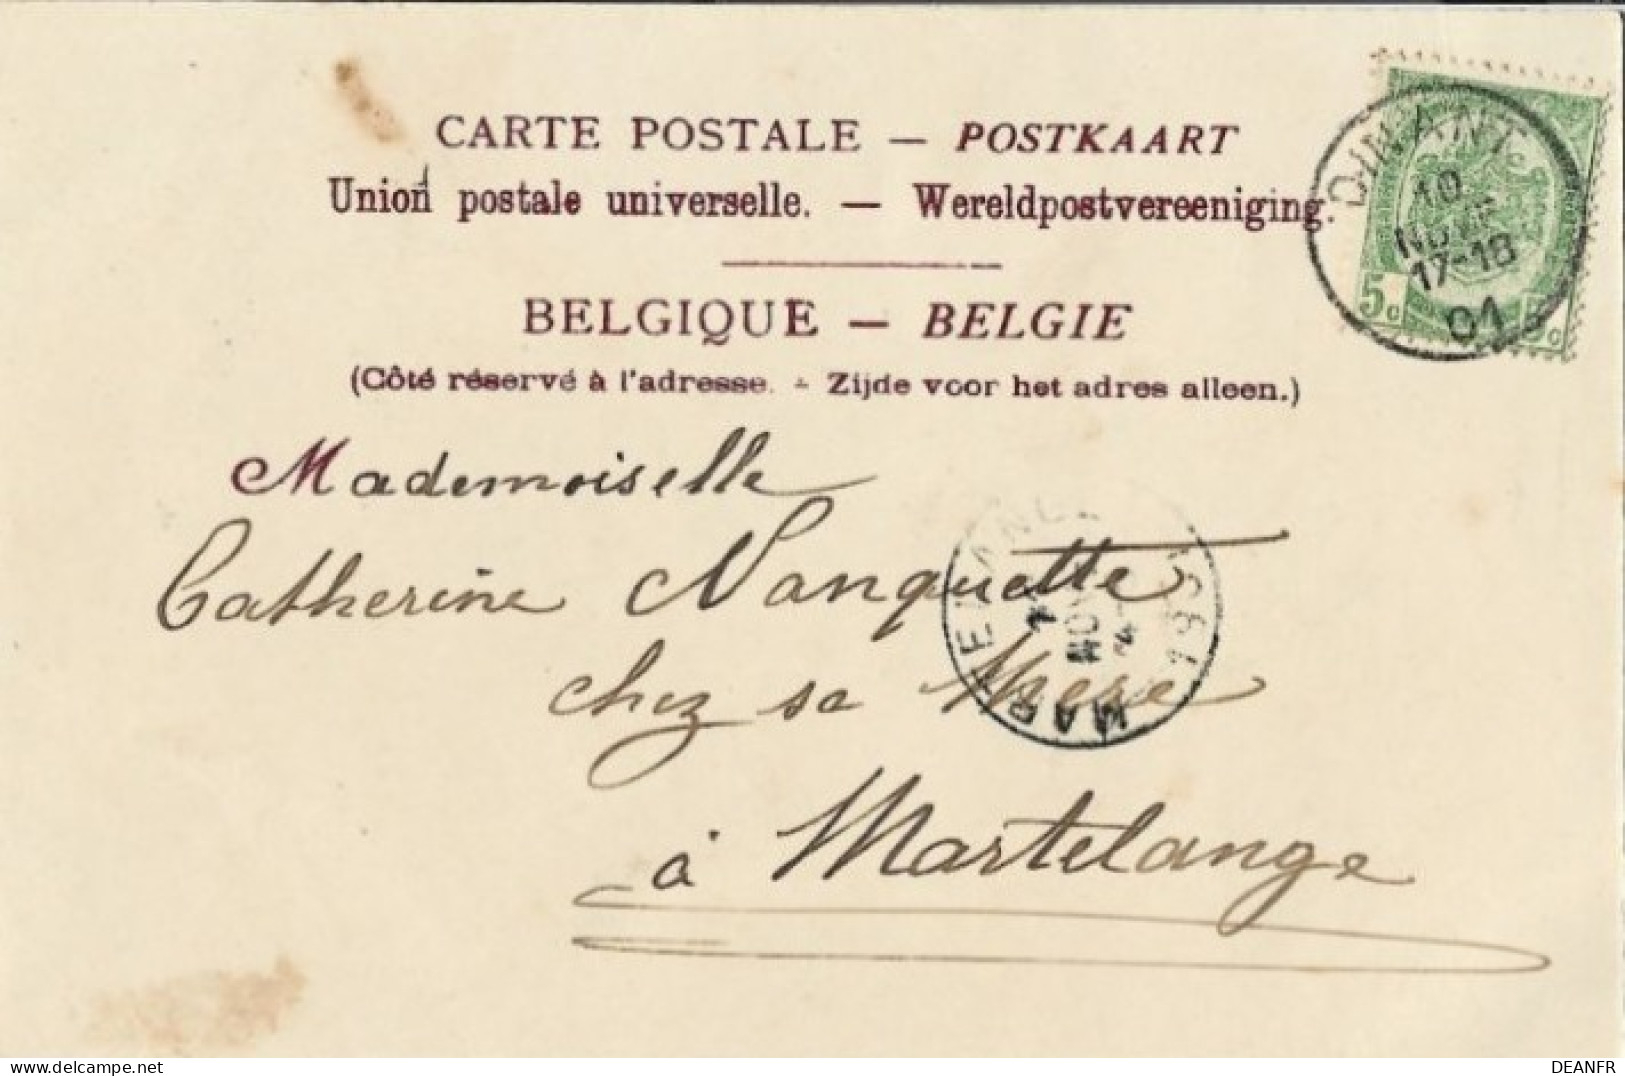 CARTE POSTALE — POSTKAART
Union postale universelle. — Wereldpostvereeniging.
BELGIQUE — BELGIE
(Côté réservé à l'adresse. - Zijde voor het adres alleen.)
DINANT
10
NOV
17-18
01
5c 5c
Mademoiselle
Catherine Nanquette
chez sa Mere
à Martelange
NOV
DEANFR